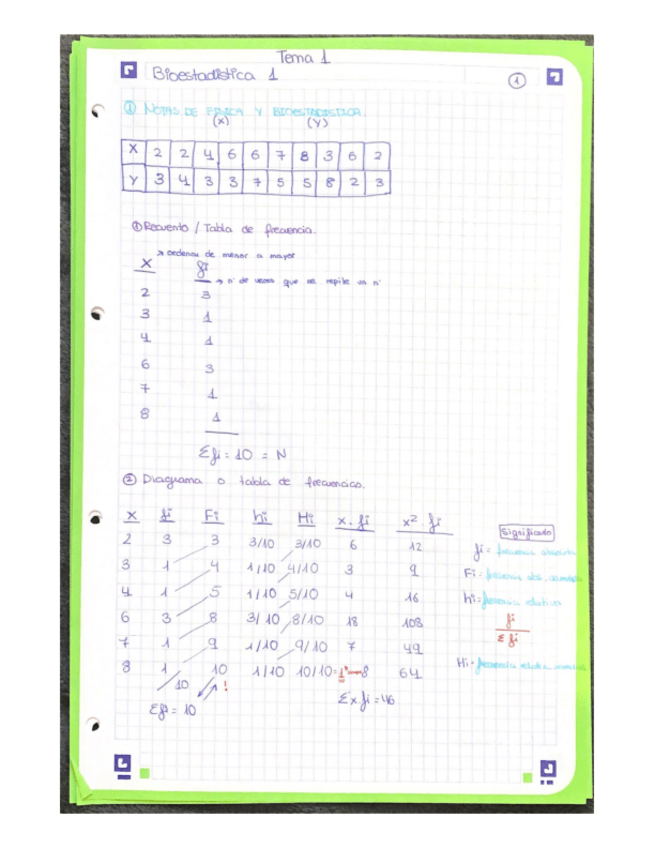 Tema 1
Bioestadística 1
1
① NOTAS DE FISICA Y BIOESTADISTICA.
(X) (Y)
X 2 2 4 6 6 7 8 3 6 2
Y 3 4 3 3 7 5 5 8 2 3
① Recuento / Tabla de frecuencia.
→ ordenar de menor a mayor
X fi
→ nº de veces que se repite un nº
2 3
3 1
4 1
6 3
7 1
8 1
Σfi = 10 = N
② Diagrama o tabla de frecuencias.
X fi Fi hi Hi x.fi x².fi
Significado
2 3 3 3/10 3/10 6 12
fi = frecuencia absoluta
3 1 4 1/10 4/10 3 9
Fi = frecuencia abs. acumulada
4 1 5 1/10 5/10 4 16
hi = frecuencia relativa
6 3 8 3/10 8/10 18 108
fi
Σfi
7 1 9 1/10 9/10 7 49
Hi = frecuencia relativa acumulada
8 1 10 1/10 10/10=1 8 64
10 !
Σfi = 10
Σx.fi = 46